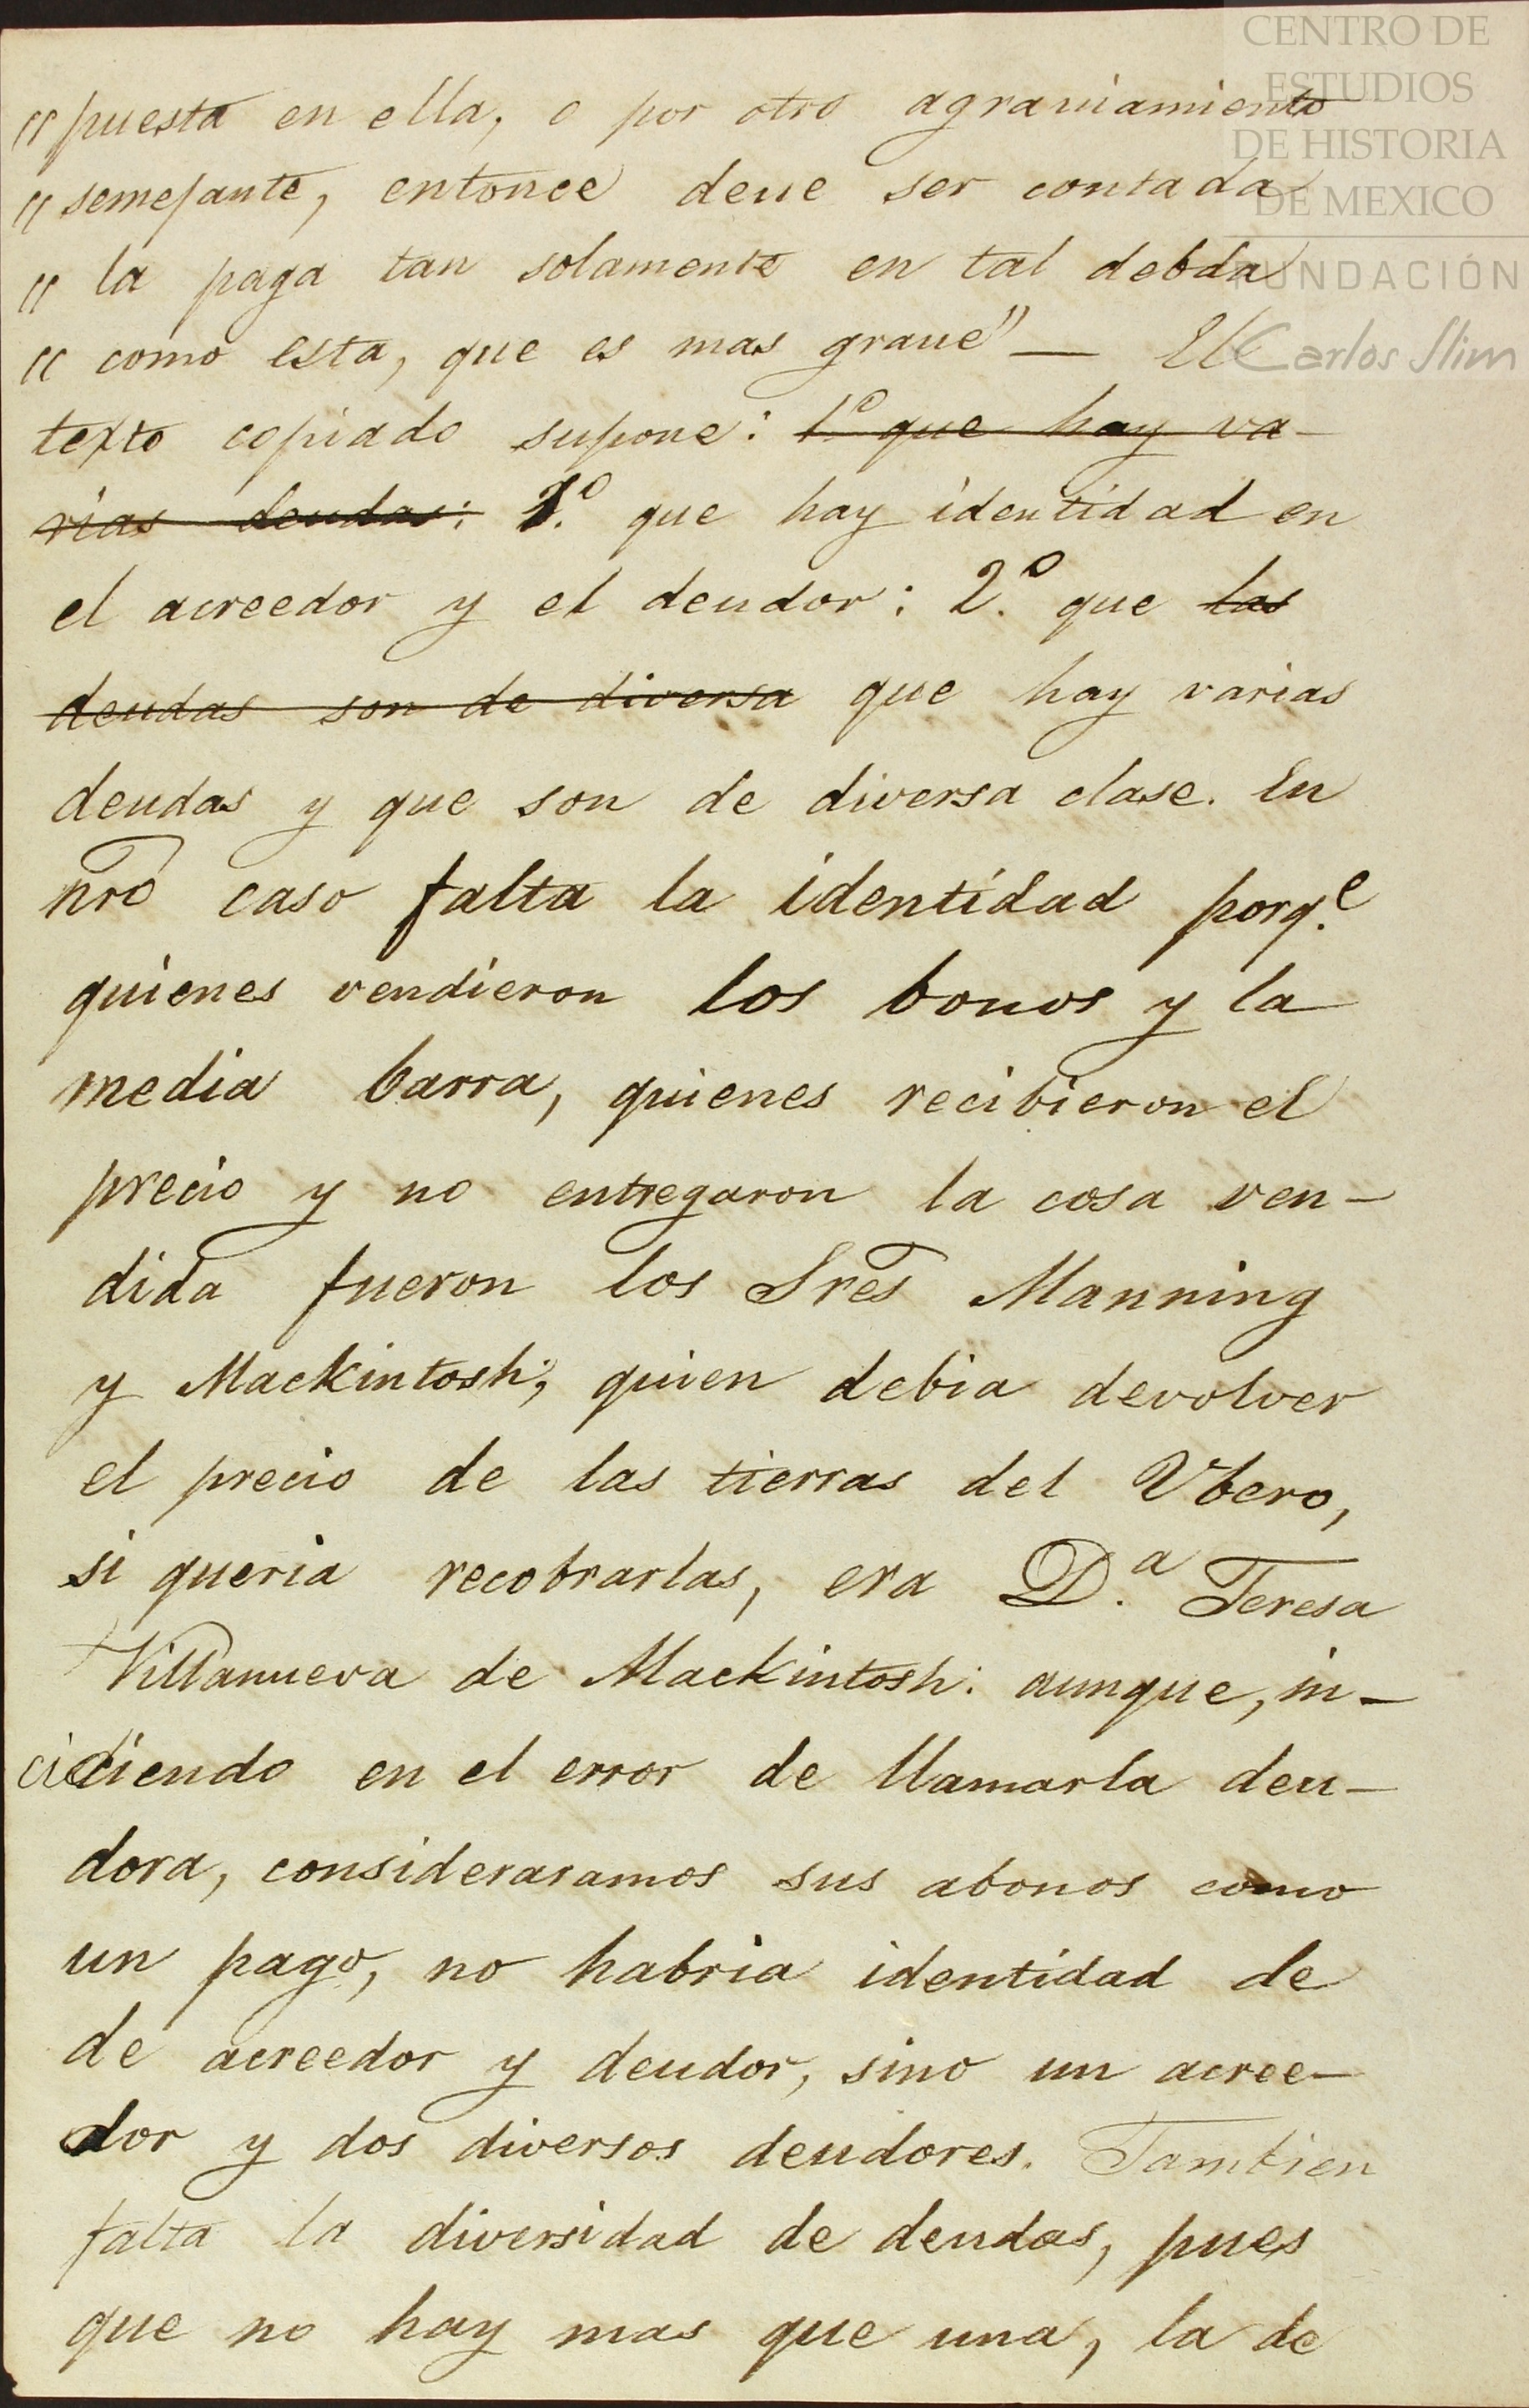 "puesta en ella, o por otro agrauiamiento
"semejante, entonce deue ser contada
" la paga tan solamente en tal debda
" como esta, que es mas graue" — El
texto copiado supone: 1º que hay va-
rias deudas: 1.º que hay identidad en
el acreedor y el deudor: 2.º que las
deudas son de diversa que hay varias
deudas y que son de diversa clase. En
nro caso falta la identidad porq.e
quienes vendieron los bonos y la
media barra, quienes recibieron el
precio y no entregaron la cosa ven-
dida fueron los Sres Manning
y Mackintosh; quien debia devolver
el precio de las tierras del Ubero,
si queria recobrarlas, era D.a Teresa
Villanueva de Mackintosh: aunque, in-
cidiendo en el error de llamarla deu-
dora, consideraramos sus abonos como
un pago, no habria identidad de
de acreedor y deudor, sino un acree-
dor y dos diversos deudores. Tambien
falta la diversidad de deudas, pues
que no hay mas que una, la de
CENTRO DE
ESTUDIOS
DE HISTORIA
DE MEXICO
FUNDACIÓN
Carlos Slim